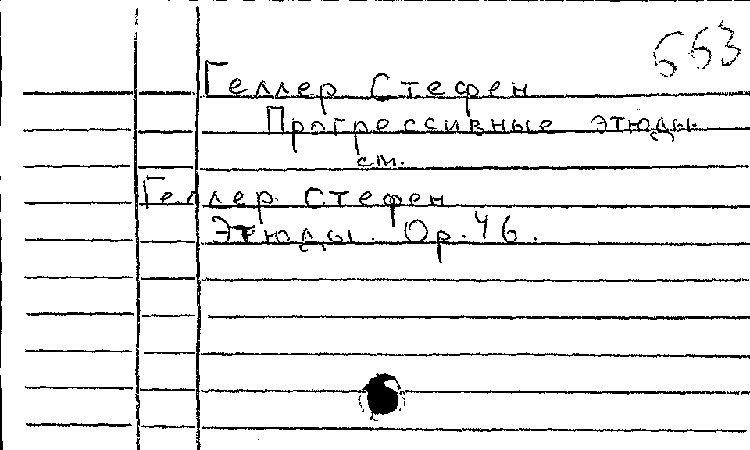 553
Геллер Стефен
Прогрессивные этюды
см.
Геллер Стефен
Этюды. Op. 46.